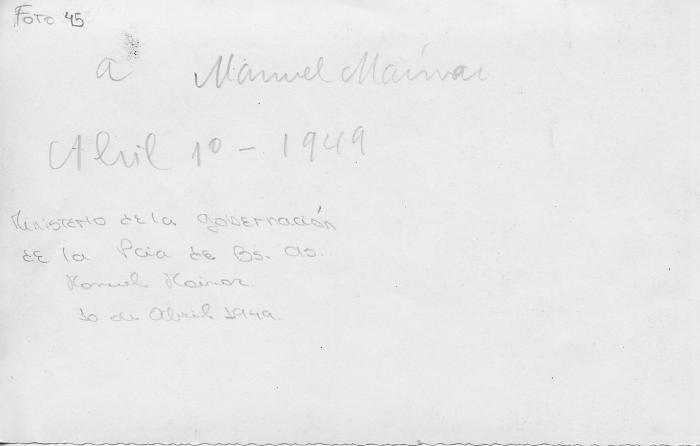 Foto 45
a Manuel Mainar
Abril 1º - 1949
Ministerio de la gobernación
de la Pcia de Bs. as.
Manuel Mainar
10 de Abril 1949.